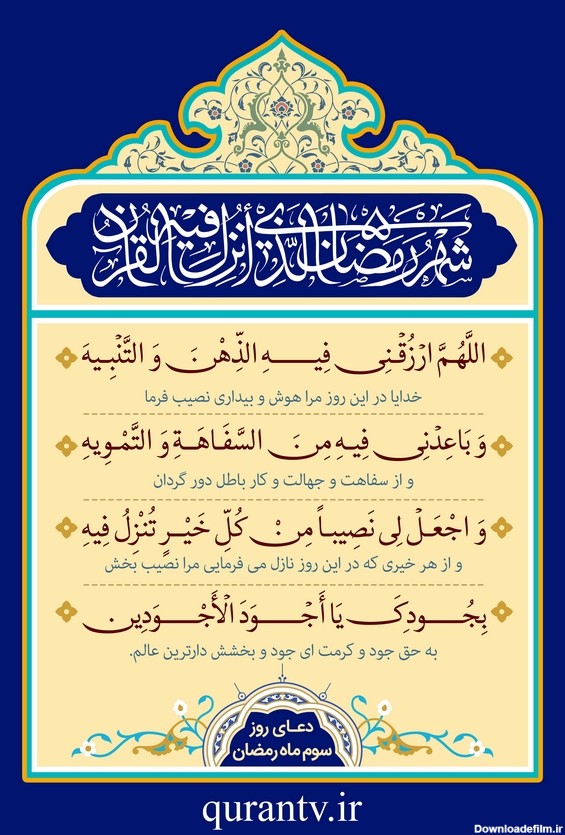 شَهْرُ رَمَضَانَ الَّذِي أُنْزِلَ فِيهِ الْقُرْآنُ
اللَّهُمَّ ارْزُقْنِی فِیهِ الذِّهْنَ وَ التَّنْبِیهَ
خدایا در این روز مرا هوش و بیداری نصیب فرما
وَ بَاعِدْنِی فِیهِ مِنَ السَّفَاهَةِ وَ التَّمْوِیهِ
و از سفاهت و جهالت و کار باطل دور گردان
وَ اجْعَلْ لِی نَصِیباً مِنْ کُلِّ خَیْرٍ تُنْزِلُ فِیهِ
و از هر خیری که در این روز نازل می فرمایی مرا نصیب بخش
بِجُودِکَ یَا أَجْوَدَ الْأَجْوَدِینَ
به حق جود و کرمت ای جود و بخشش دارترین عالم.
دعای روز
سوم ماه رمضان
qurantv.ir
Downloadefilm.ir